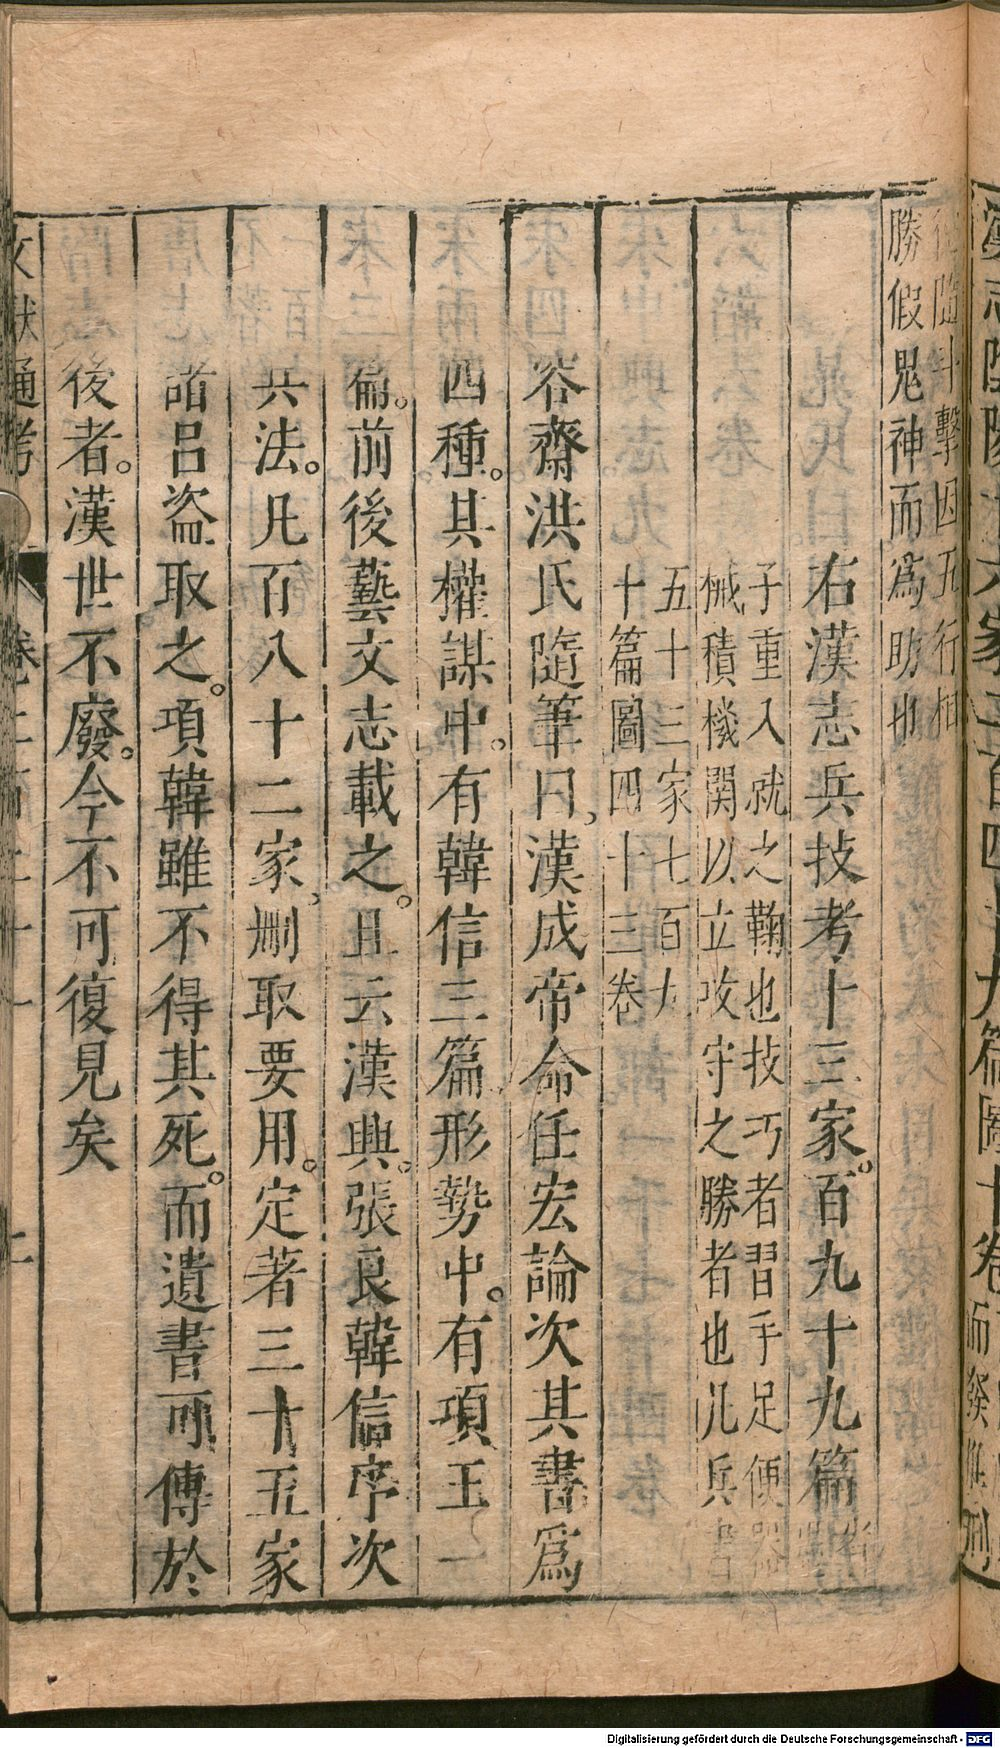 漢志陰陽十六家二百四十九篇圖十卷
而發推刑
德隨斗擊因五行相
勝假鬼神而爲助也
右漢志兵技考十三家。百九十九篇省墨
子重入就之鞠也技巧者習手足便器
械積機關以立攻守之勝者也凡兵書
五十三家七百九
十篇圖四十三卷
容齋洪氏隨筆曰、漢成帝命任宏論次其書爲
四種。其權謀中。有韓信三篇形勢中。有項王一
篇。前後藝文志載之。且云漢興。張良韓信序次
兵法。凡百八十二家、删取要用。定著三十五家
諸呂盜取之。項韓雖不得其死。而遺書可傳於
後者。漢世不廢。今不可復見矣
文獻通考
卷二百二十一
七
Digitalisierung gefördert durch die Deutsche Forschungsgemeinschaft - DFG